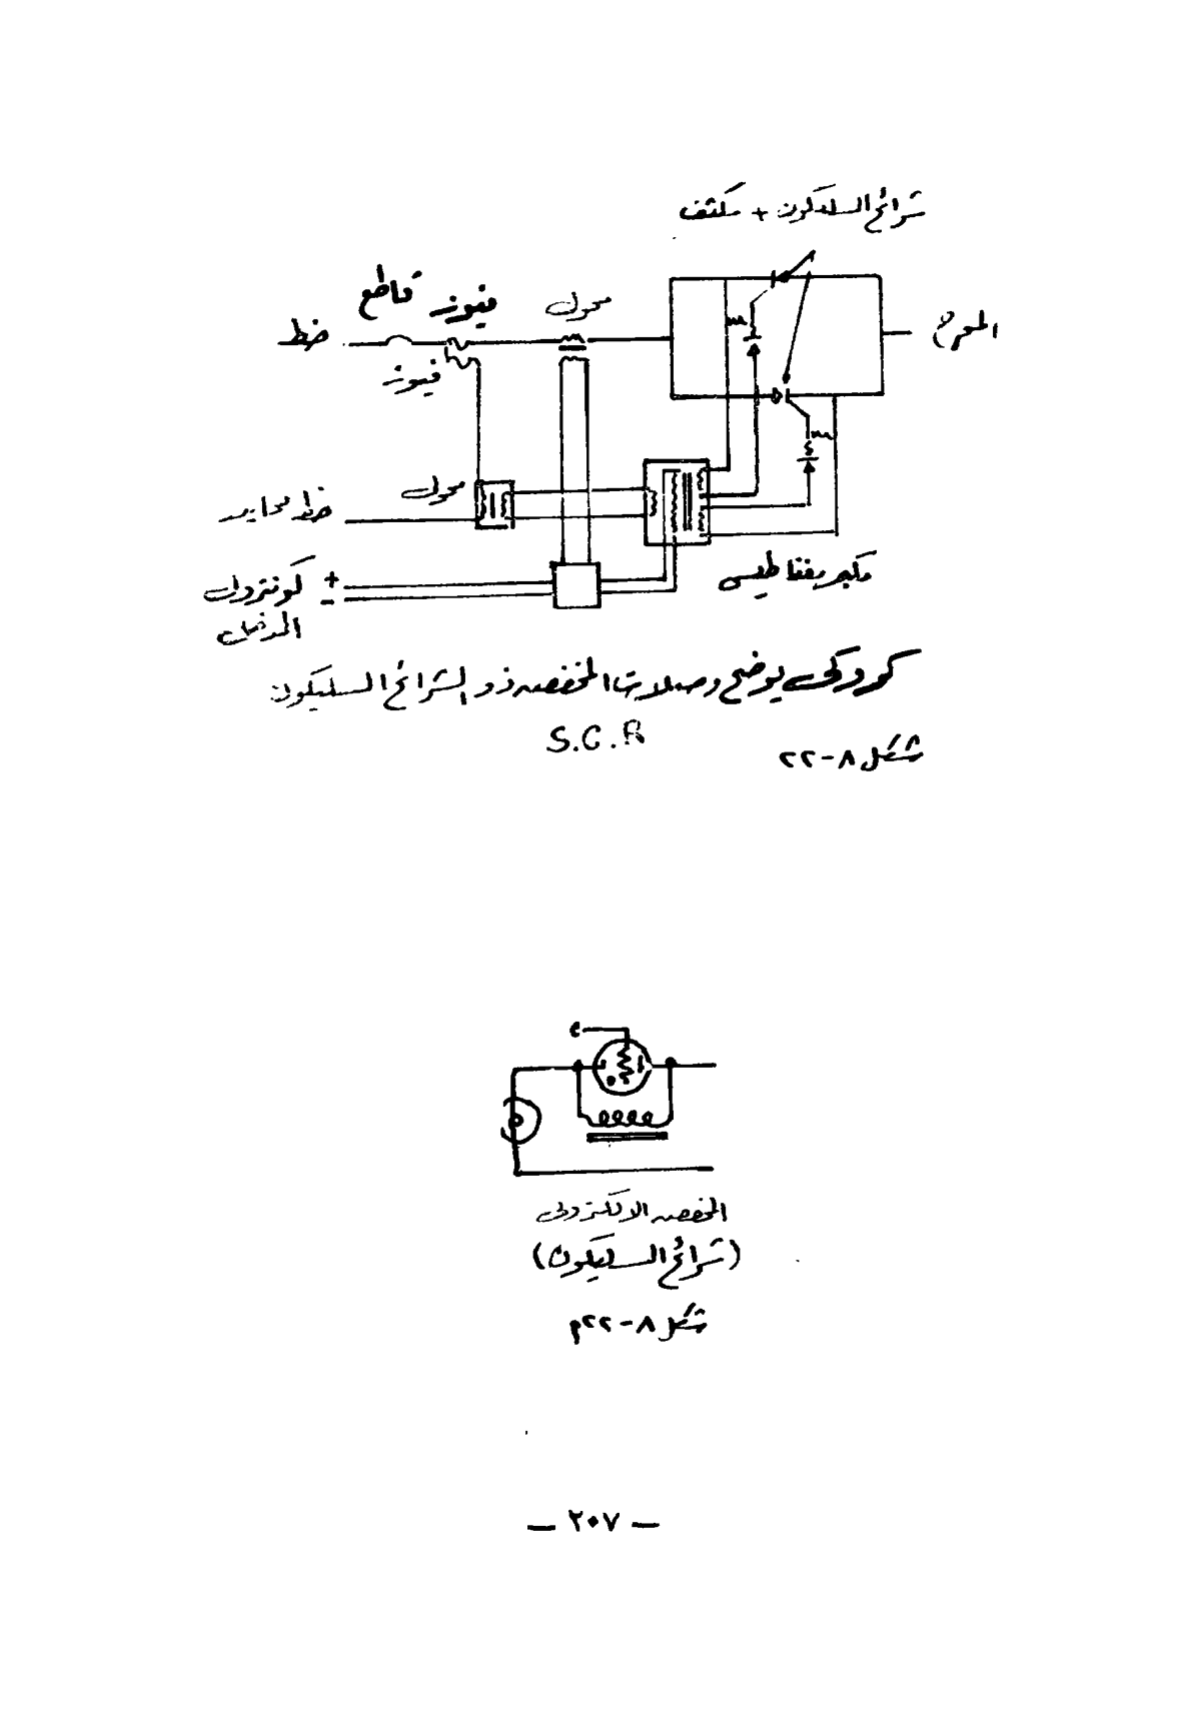 شرائح السليكون + مكثف
قاطع
فيوز
محول
خط
فيوز
المخرج
محول
خط محايد
مكبر مغناطيسى
+
كونترول
-
المدخل
كروكى يوضح وصلات المخفض ذو الشرائح السليكون
S.C.R
شكل ٨-٢٢
المخفض الالكترونى
(شرائح السليكون)
شكل ٨-٢٢م
— ٢٠٧ —